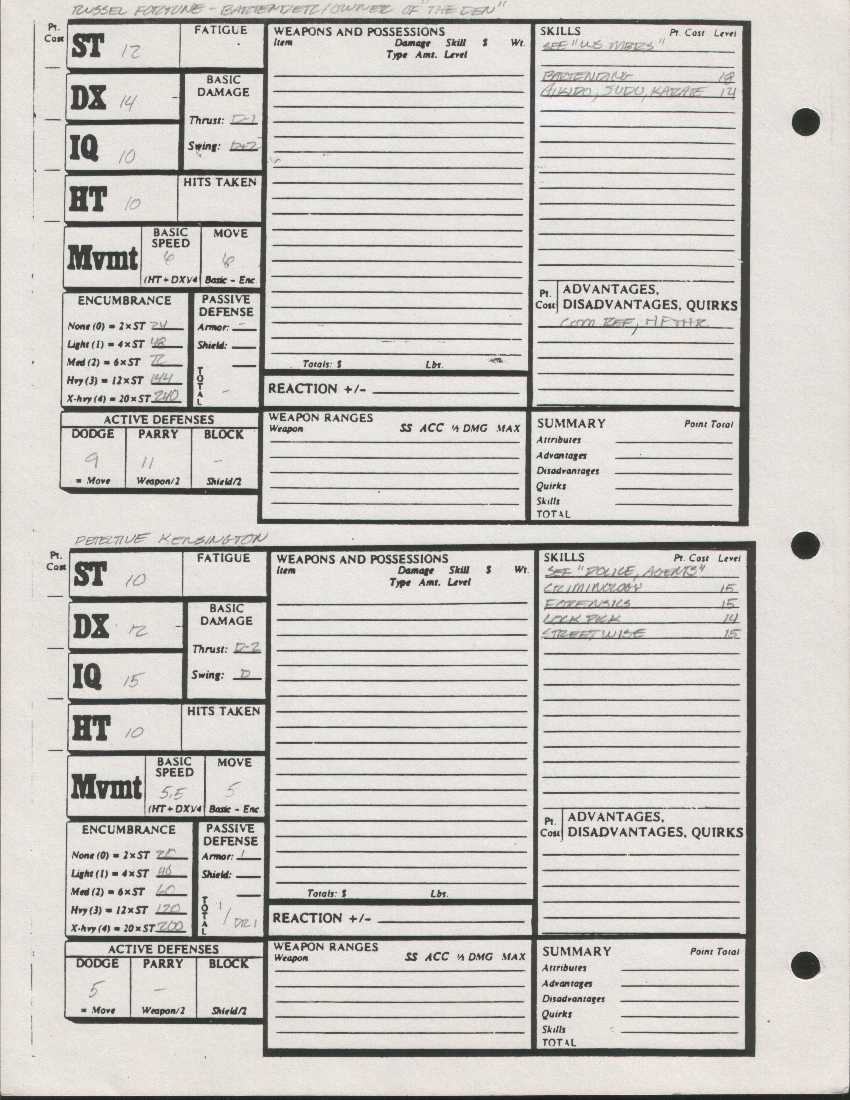 RUSSEL FORTUNE - BARTENDER/OWNER OF "THE DEN"
Pt. Cost
ST 12
FATIGUE
DX 14
BASIC DAMAGE
Thrust: D-1
Swing: D+2
IQ 10
HT 10
HITS TAKEN
Mvmt
BASIC SPEED 6
(HT + DX)/4
MOVE 6
Basic - Enc.
ENCUMBRANCE
None (0) = 2 × ST 24
Light (1) = 4 × ST 48
Med (2) = 6 × ST 72
Hvy (3) = 12 × ST 144
X-hvy (4) = 20 × ST 240
PASSIVE DEFENSE
Armor: -
Shield:
TOTAL -
ACTIVE DEFENSES
DODGE PARRY BLOCK
9 11 -
= Move Weapon/2 Shield/2
WEAPONS AND POSSESSIONS
Item Damage Skill $ Wt.
Type Amt. Level
Totals: $ Lbs.
REACTION +/-
WEAPON RANGES
Weapon SS ACC ½ DMG MAX
SKILLS Pt. Cost Level
BARTENDING 18
AIKIDO, JUDO, KARATE 14
Pt. Cost
ADVANTAGES,
DISADVANTAGES, QUIRKS
COM REF,
SUMMARY Point Total
Attributes
Advantages
Disadvantages
Quirks
Skills
TOTAL
DETECTIVE KENSINGTON
Pt. Cost
ST 10
FATIGUE
DX 12
BASIC DAMAGE
Thrust: D-2
Swing: D
IQ 15
HT 10
HITS TAKEN
Mvmt
BASIC SPEED 5.5
(HT + DX)/4
MOVE 5
Basic - Enc.
ENCUMBRANCE
None (0) = 2 × ST 20
Light (1) = 4 × ST 40
Med (2) = 6 × ST 60
Hvy (3) = 12 × ST 120
X-hvy (4) = 20 × ST 200
PASSIVE DEFENSE
Armor: 1
Shield:
TOTAL 1/DR1
ACTIVE DEFENSES
DODGE PARRY BLOCK
5 -
= Move Weapon/2 Shield/2
WEAPONS AND POSSESSIONS
Item Damage Skill $ Wt.
Type Amt. Level
Totals: $ Lbs.
REACTION +/-
WEAPON RANGES
Weapon SS ACC ½ DMG MAX
SKILLS Pt. Cost Level
SEE "POLICE, AGENTS"
CRIMINOLOGY 15
FORENSICS 15
LOCK PICK 14
STREETWISE 15
Pt. Cost
ADVANTAGES,
DISADVANTAGES, QUIRKS
SUMMARY Point Total
Attributes
Advantages
Disadvantages
Quirks
Skills
TOTAL